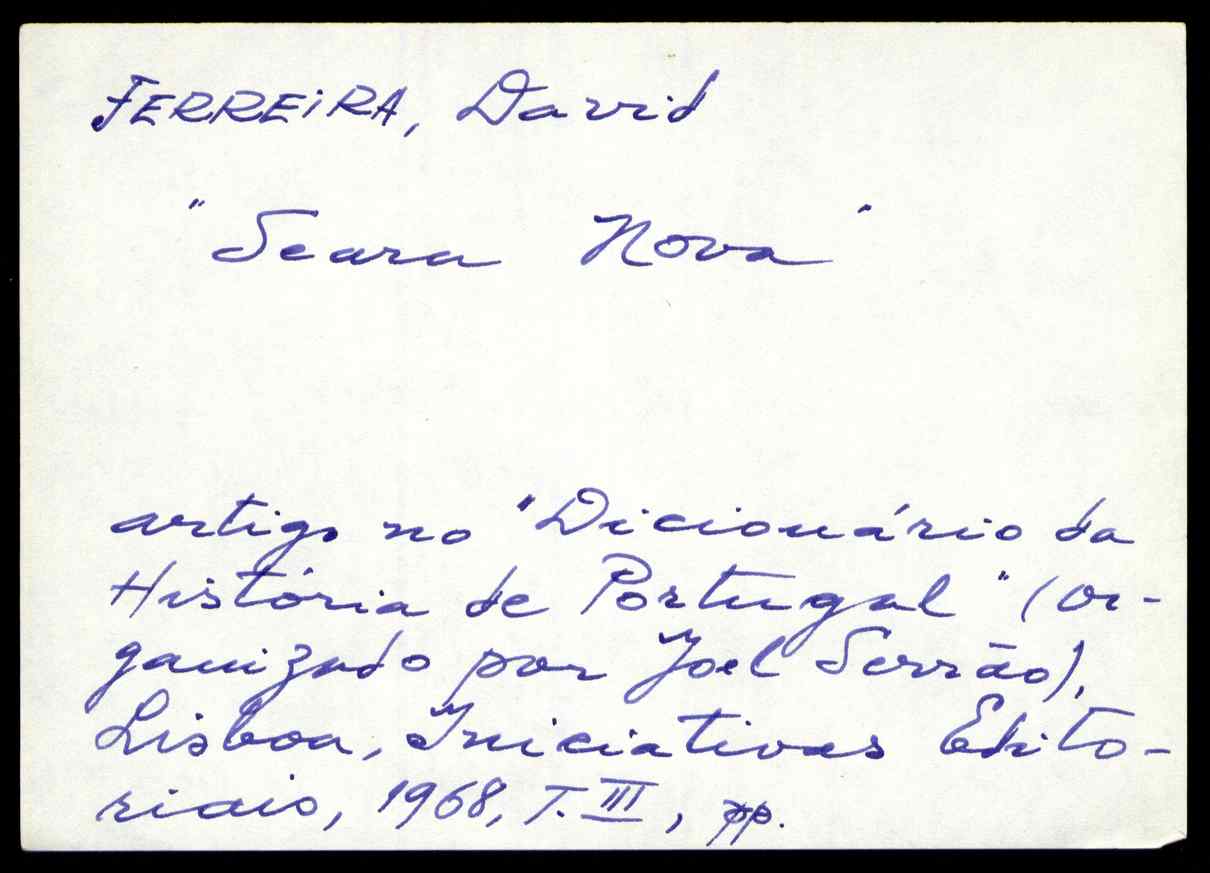 FERREIRA, David
"Seara Nova"
artigo no "Dicionário da
História de Portugal" (or-
ganizado por Joel Serrão),
Lisboa, Iniciativas Edito-
riais, 1968, T. III, pp.